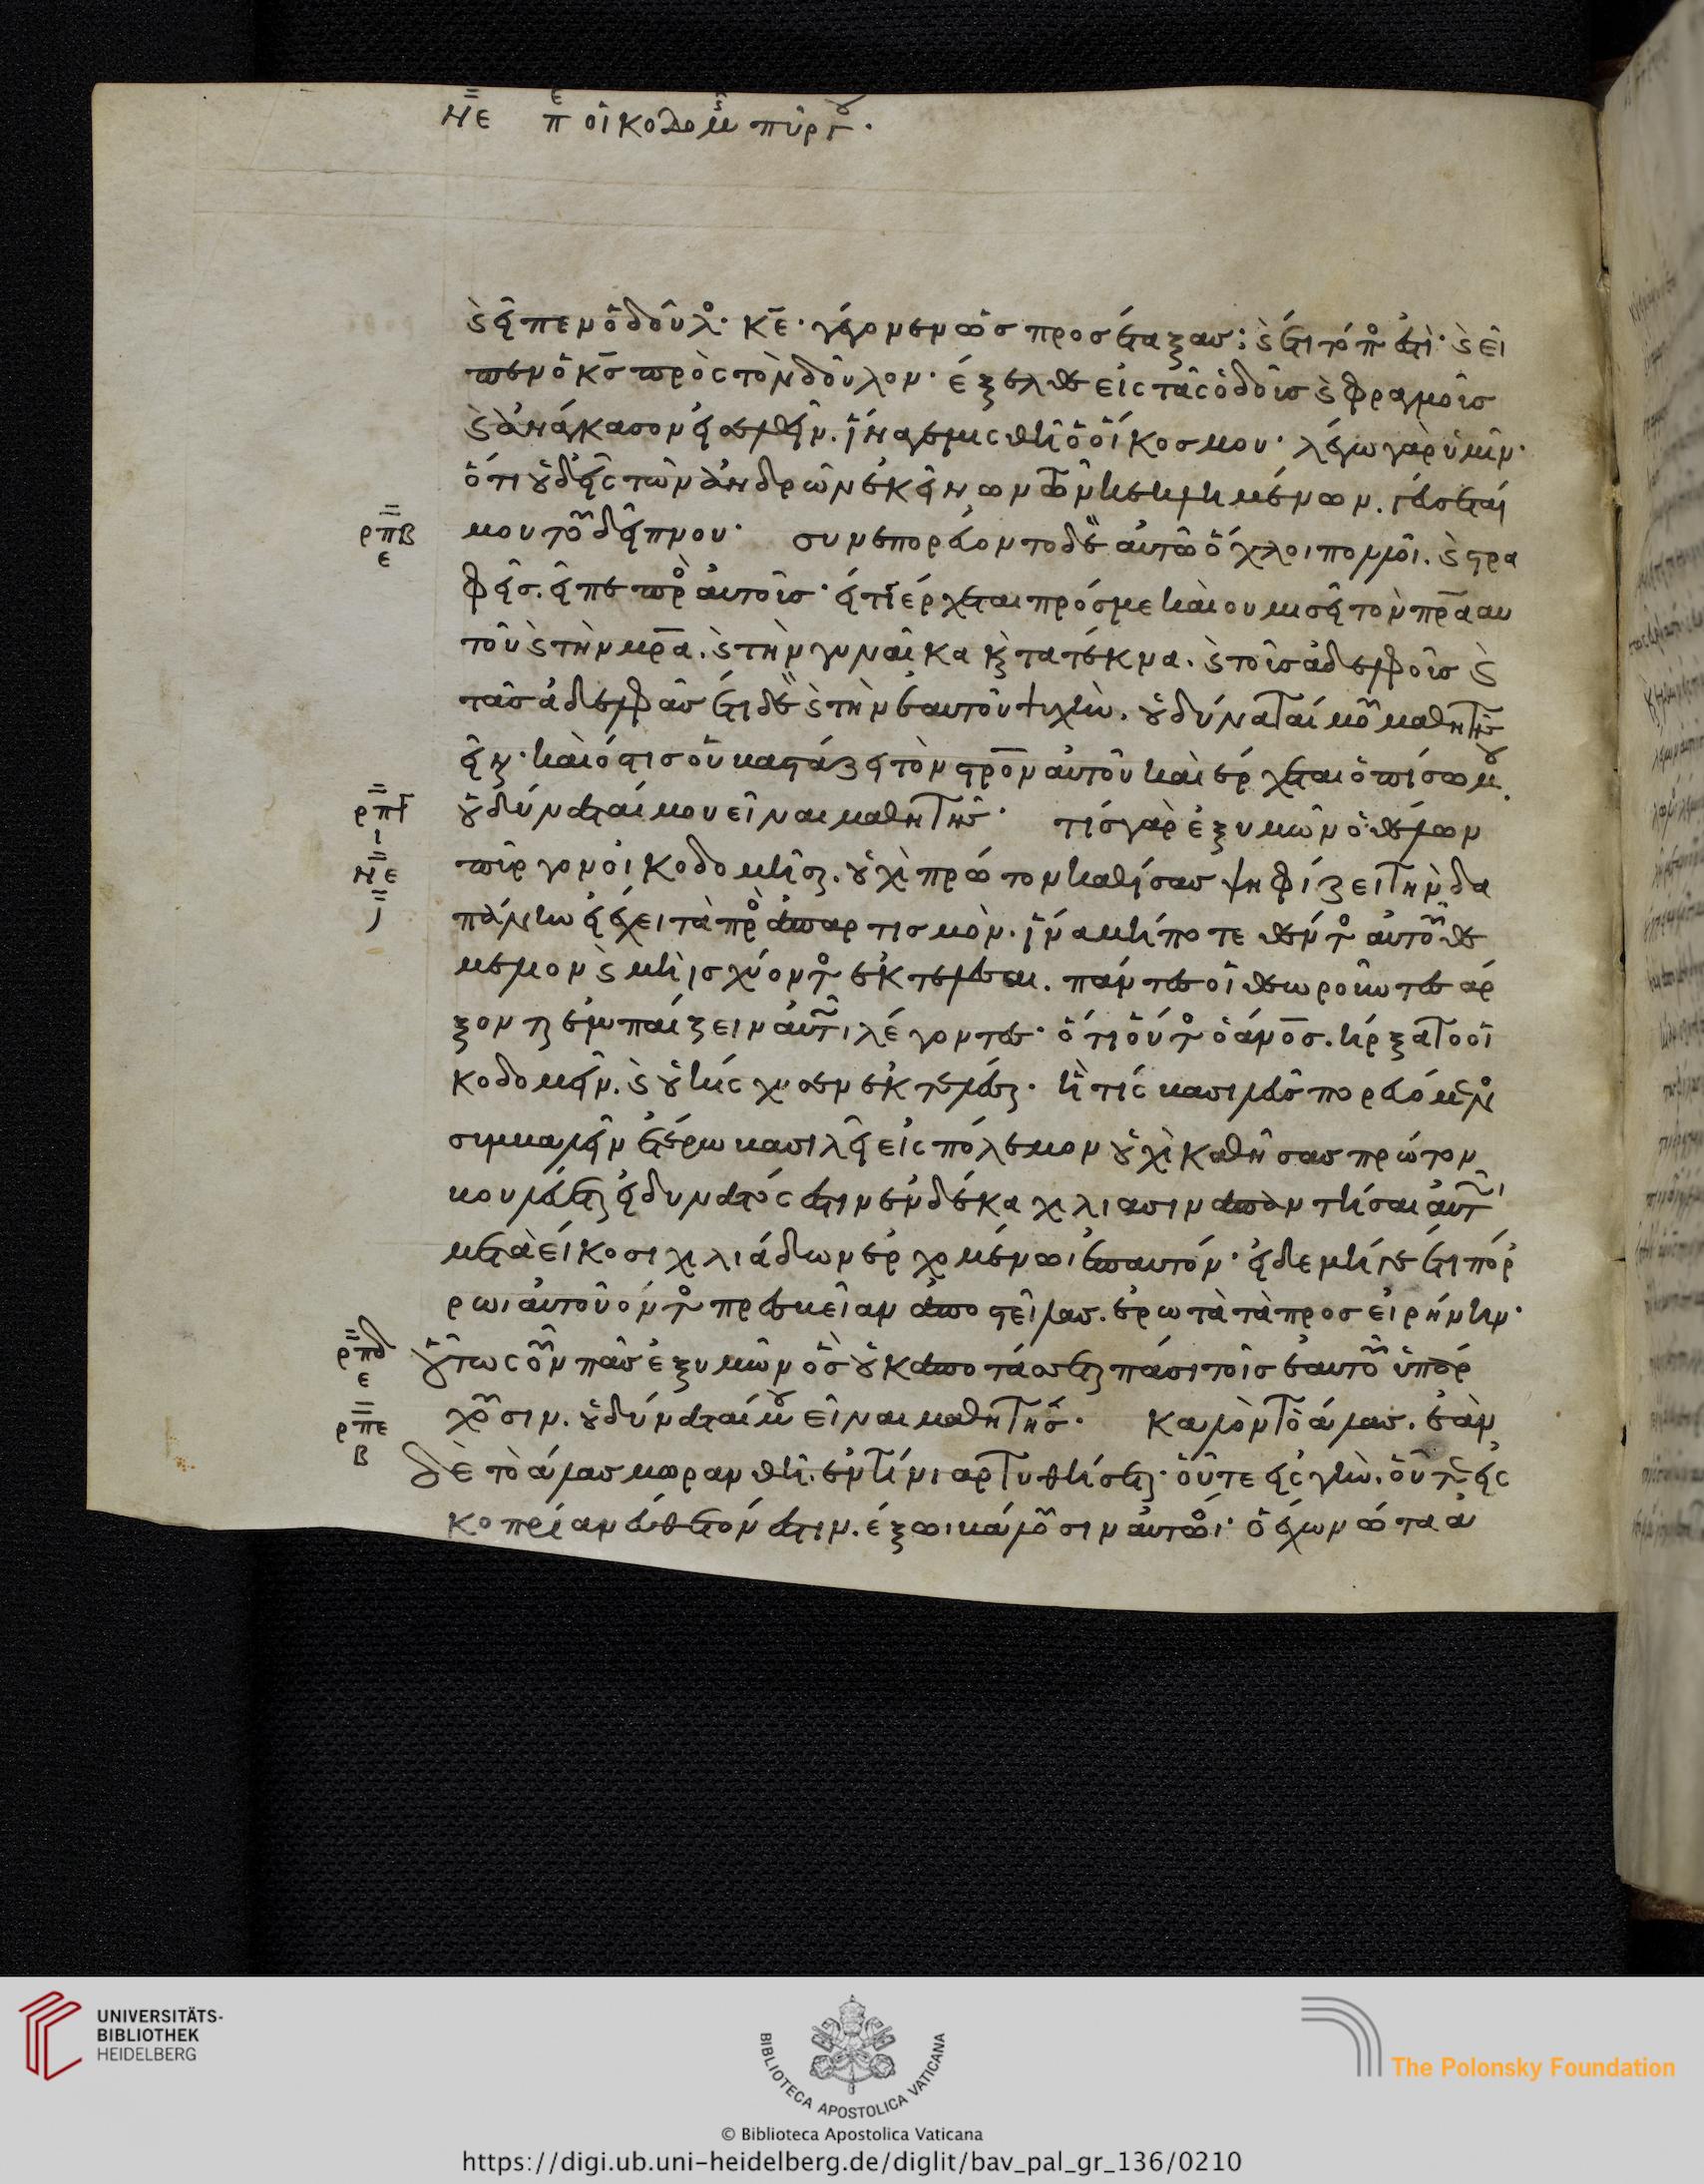 ΝΕ π(ερὶ) οἰκοδομ(ῆς) πύργου·
καὶ εἶπεν ὁ δοῦλος· κε̄· γέγονεν ὡς προσέταξας; καὶ ἔτι τόπος ἐστὶ· καὶ εἶ
πεν ὁ κς̄ πρὸς τὸν δοῦλον· ἔξελθε εἰς τὰς ὁδοὺς καὶ φραγμοὺς
καὶ ἀνάγκασον εἰσελθεῖν. ἵνα γεμισθῆ ὁ οἶκος μου· λέγω γὰρ ὑμῖν·
ὅτι οὐδεὶς τῶν ἀνδρῶν ἐκείνων τῶν κεκλημένων. γεύσεταί
ρπβ ε μου τοῦ δείπνου· συνεπορεύοντο δὲ αὐτῶ ὄχλοι πολλοὶ. καὶ στρα
φεὶς. εἶπε πρὸς αὐτοὺς· εἴ τις ἔρχεται πρός με καὶ οὐ μισεῖ τὸν πρ̄α αυ
τοῦ καὶ τὴν μρ̄α. καὶ τὴν γυναῖκα καὶ τὰ τέκνα. καὶ τοὺς ἀδελφοὺς καὶ
τὰς ἀδελφὰς ἔτι δὲ καὶ τὴν ἑαυτοῦ ψυχὴν. οὐ δύναταί μου μαθητὴς
εἶναι· καὶ ὅστις οὐ βαστάζει τὸν στρ̄ον αὐτοῦ καὶ ἔρχεται ὀπίσω μου.
ρπγ ι οὐ δύναταί μου εἶναι μαθητὴς· τίς γὰρ ἐξ ὑμῶν ὁ θέλων
ΝΕ πύργον οἰκοδομῆσαι. οὐχὶ πρῶτον καθίσας ψηφίζει τὴν δα
πάνην εἰ ἔχει τὰ πρὸς ἀπαρτισμὸν. ἵνα μήποτε θέντος αὐτοῦ θε
μέλιον καὶ μὴ ἰσχύοντος ἐκτελέσαι. πάντες οἱ θεωροῦντες ἄρ
ξονται ἐμπαίζειν αὐτῶι λέγοντες· ὅτι οὗτος ὁ ἄνο̄ς. ἤρξατο οἰ
κοδομεῖν. καὶ οὐκ ἴσχυσεν ἐκτελέσαι· ἢ τίς βασιλεὺς πορευόμενος
συμβαλεῖν ἑτέρω βασιλεῖ εἰς πόλεμον οὐχὶ καθήσας πρῶτον
βουλεύεται εἰ δυνατός ἐστιν ἐν δέκα χιλιάσιν ἀπαντῆσαι αὐτῶι
μετὰ εἴκοσι χιλιάδων ἐρχομένωι ἐπ αυτόν· εἰ δὲ μήγε ἔτι πόρ
ρωι αὐτοῦ ὄντος πρεσβείαν ἀποστείλας. ἐρωτᾶ τὰ προς εἰρήνην·
ρπδ ε οὕτως οὖν πᾶς ἐξ ὑμῶν ὃς οὐκ ἀποτάσσεται πᾶσι τοῖς ἑαυτοῦ ὑπάρ
ρπε β χουσιν. οὐ δύναταί μου εἶναι μαθητὴς· καλὸν τὸ ἅλας. ἐὰν
δὲ τὸ ἅλας μωρανθῆ. ἐν τίνι ἀρτυθήσεται· οὔτε εἰς γῆν. οὔτε εἰς
κοπρίαν εὔθετόν ἐστιν. ἔξωι βάλουσιν αὐτῶι· ὁ ἔχων ὦτα ἀ
UNIVERSITÄTS-
BIBLIOTHEK
HEIDELBERG
BIBLIOTECA APOSTOLICA VATICANA
The Polonsky Foundation
© Biblioteca Apostolica Vaticana
https://digi.ub.uni-heidelberg.de/diglit/bav_pal_gr_136/0210